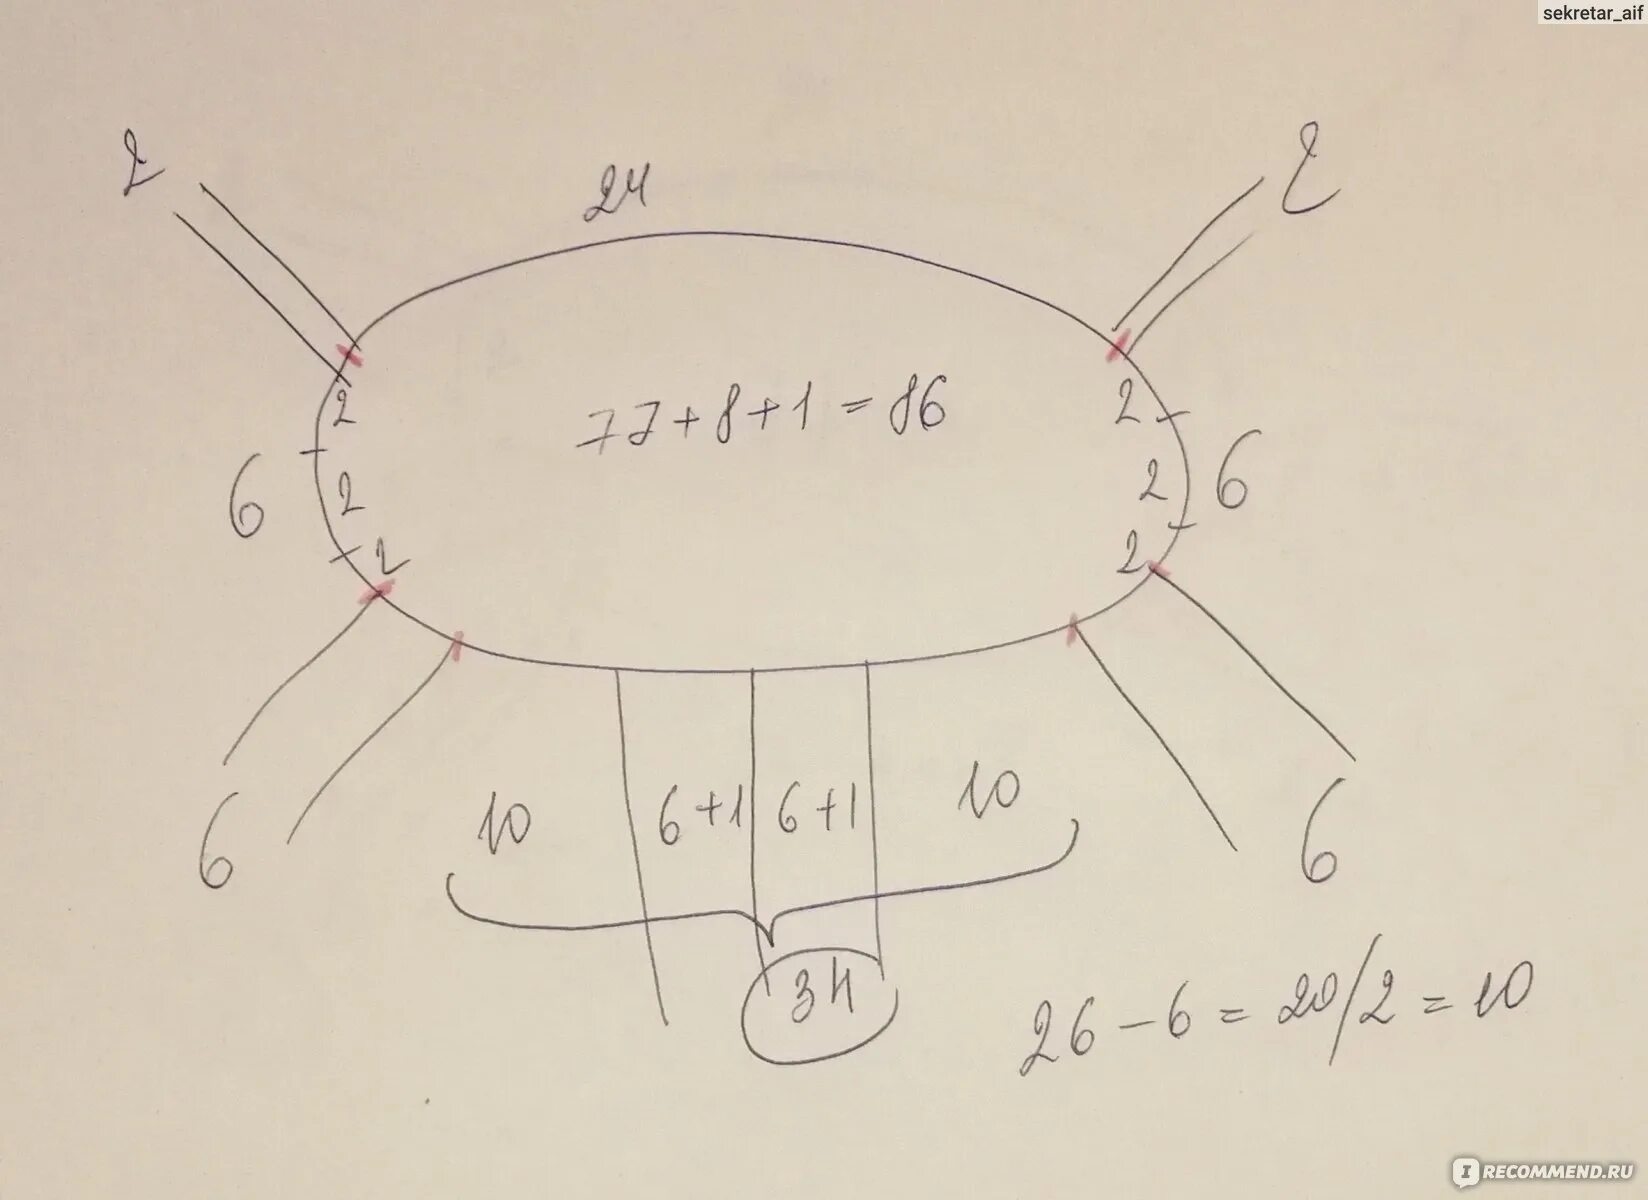 sekretar_aif
2
24
2
77+8+1=86
2
2
6
2
2
6
2
2
2
10
6+1
6+1
10
6
6
34
26-6=20/2=10
IRECOMMEND.RU